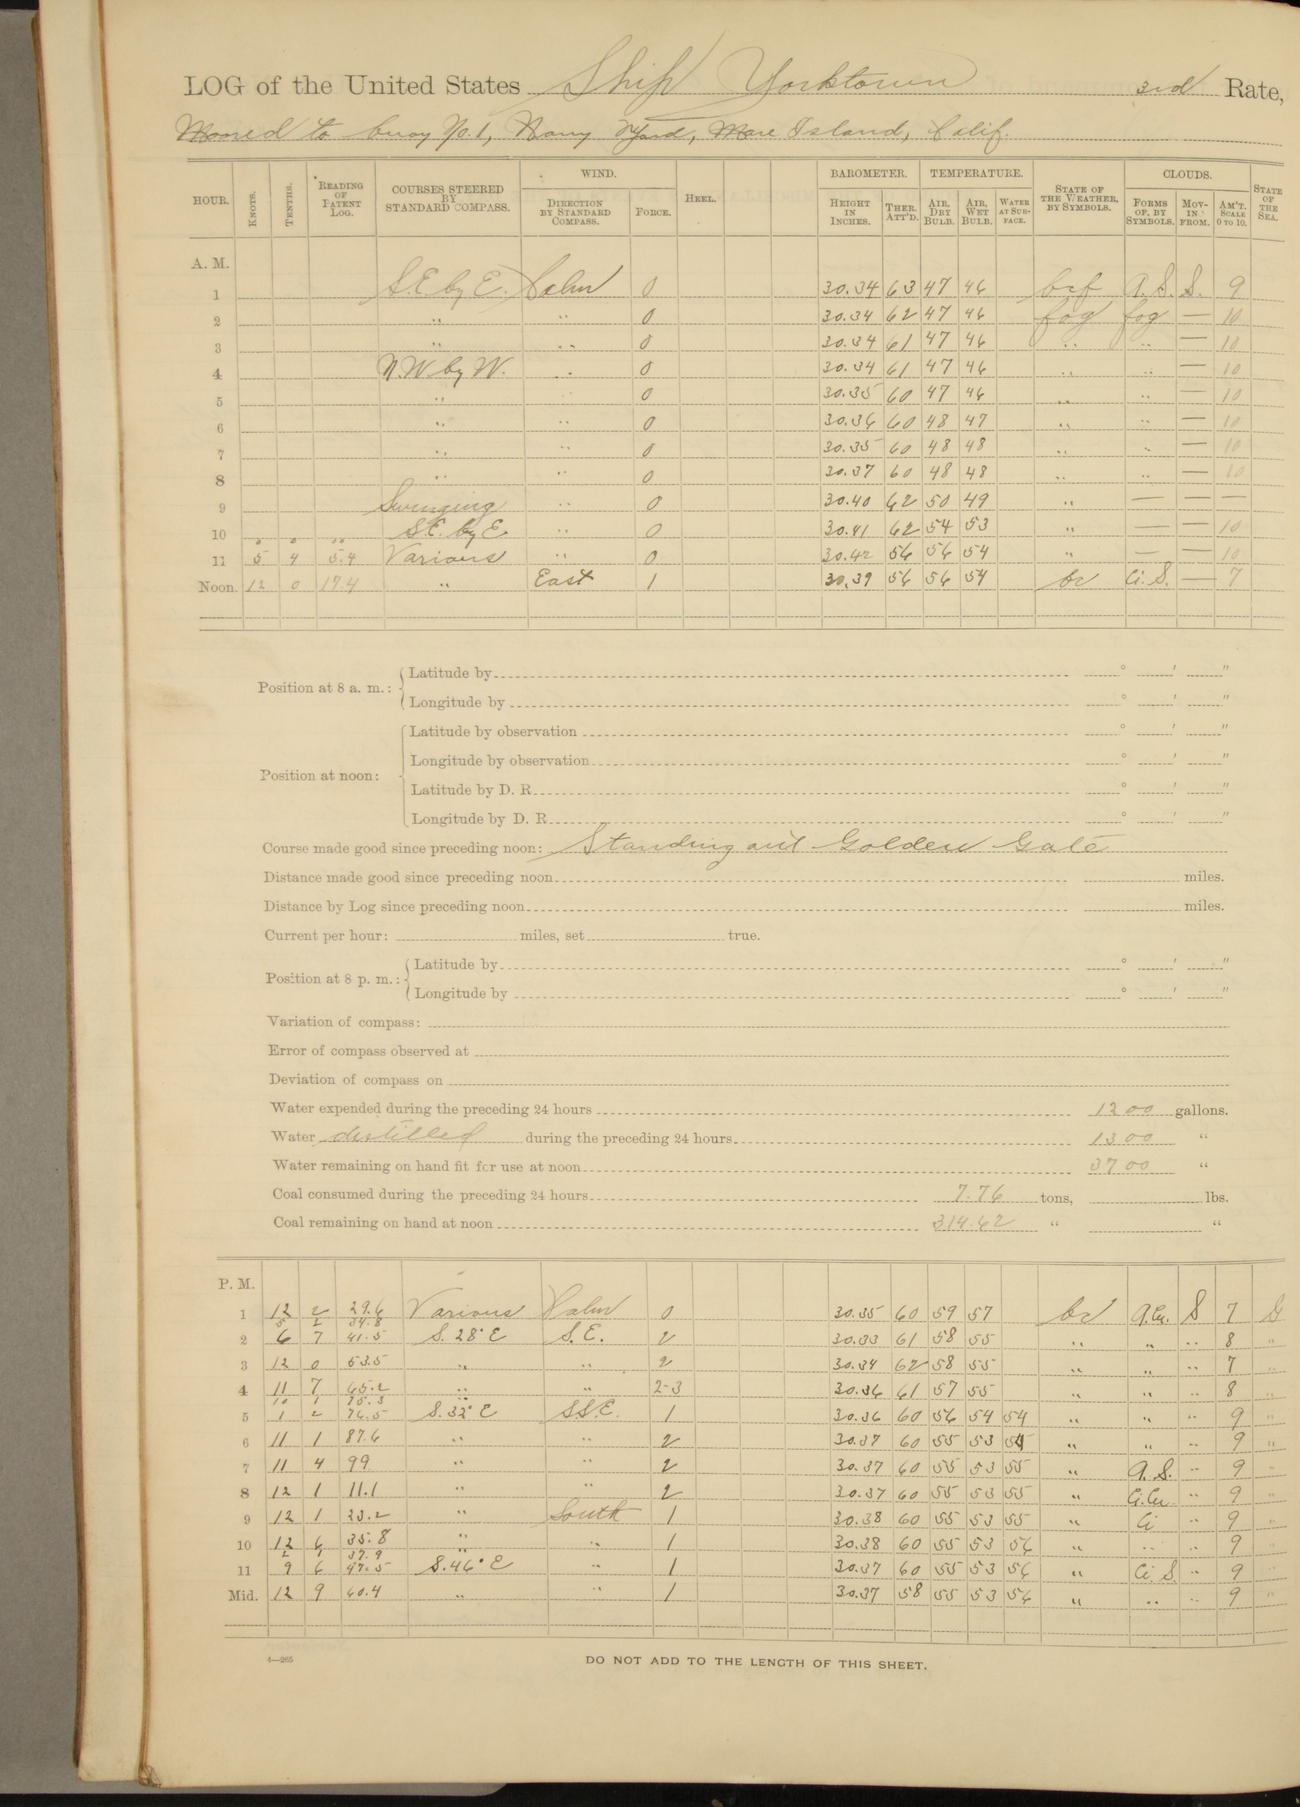 LOG of the United States Ship Yorktown 3rd Rate,
Moored to buoy No. 1, Navy Yard, Mare Island, Calif.
HOUR. KNOTS. TENTHS. READING OF PATENT LOG. COURSES STEERED BY STANDARD COMPASS. WIND. DIRECTION BY STANDARD COMPASS. FORCE. HEEL. BAROMETER. HEIGHT IN INCHES. THER. ATT'D. TEMPERATURE. AIR, DRY BULB. AIR, WET BULB. WATER AT SURFACE. STATE OF THE WEATHER, BY SYMBOLS. CLOUDS. FORMS OF, BY SYMBOLS. MOVING FROM. AM'T. SCALE 0 TO 10. STATE OF THE SEA.
A. M.
1 S.E. by E. Calm 0 30.34 63 47 46 bcf A.S. S. 9
2 " " 0 30.34 62 47 46 fog fog — 10
3 " " 0 30.34 61 47 46 " " — 10
4 N.W. by W. " 0 30.34 61 47 46 " " — 10
5 " " 0 30.35 60 47 46 " " — 10
6 " " 0 30.36 60 48 47 " " — 10
7 " " 0 30.35 60 48 48 " " — 10
8 " " 0 30.37 60 48 48 " " — 10
9 Swinging " 0 30.40 62 50 49 " — — —
10 S.E. by E " 0 30.41 62 54 53 " — — 10
11 5 4 5.4 Various " 0 30.42 56 56 54 " — — 10
Noon. 12 0 17.4 " East 1 30.39 56 56 54 bc Ci.S. — 7
Position at 8 a. m.: Latitude by ° ' "
Longitude by ° ' "
Latitude by observation ° ' "
Longitude by observation ° ' "
Position at noon:
Latitude by D. R. ° ' "
Longitude by D. R. ° ' "
Course made good since preceding noon: Standing out Golden Gate
Distance made good since preceding noon miles.
Distance by Log since preceding noon miles.
Current per hour: miles, set true.
Position at 8 p. m.: Latitude by ° ' "
Longitude by ° ' "
Variation of compass:
Error of compass observed at
Deviation of compass on
Water expended during the preceding 24 hours 1200 gallons.
Water distilled during the preceding 24 hours 1300 "
Water remaining on hand fit for use at noon 3700 "
Coal consumed during the preceding 24 hours 7.76 tons, lbs.
Coal remaining on hand at noon 314.62 " "
P. M.
1 12 2 29.6 Various Calm 0 30.35 60 59 57 bc A.Cu. S 7 S
5 2 34.8
2 6 7 41.5 S. 28° E S.E. 2 30.33 61 58 55 " " " 8 "
3 12 0 53.5 " " 2 30.34 62 58 55 " " " 7 "
4 11 7 65.2 " " 2-3 30.36 61 57 55 " " " 8 "
10 1 75.3 "
5 1 2 76.5 S. 32° E SSE. 1 30.36 60 56 54 54 " " " 9 "
6 11 1 87.6 " " 2 30.37 60 55 53 54 " " " 9 "
7 11 4 99 " " 2 30.37 60 55 53 55 " A.S. " 9 "
8 12 1 11.1 " " 2 30.37 60 55 53 55 " Ci.Cu. " 9 "
9 12 1 23.2 " South 1 30.38 60 55 53 55 " Ci " 9 "
10 12 6 35.8 " " 1 30.38 60 55 53 56 " " " 9 "
2 1 37.9 "
11 9 6 47.5 S. 46° E " 1 30.37 60 55 53 56 " Ci.S. " 9 "
Mid. 12 9 60.4 " " 1 30.37 58 55 53 56 " " " 9 "
4—265 DO NOT ADD TO THE LENGTH OF THIS SHEET.